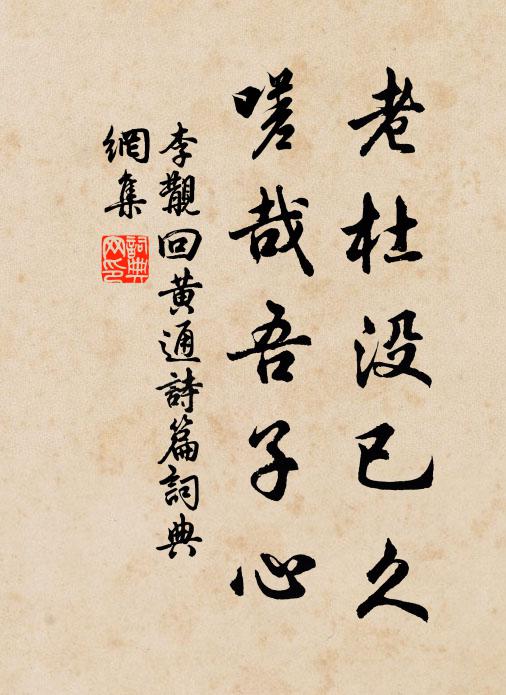 老杜没已久
嗟哉吾子心
李觀回黄通詩篇詞典
網集
詞典
网印